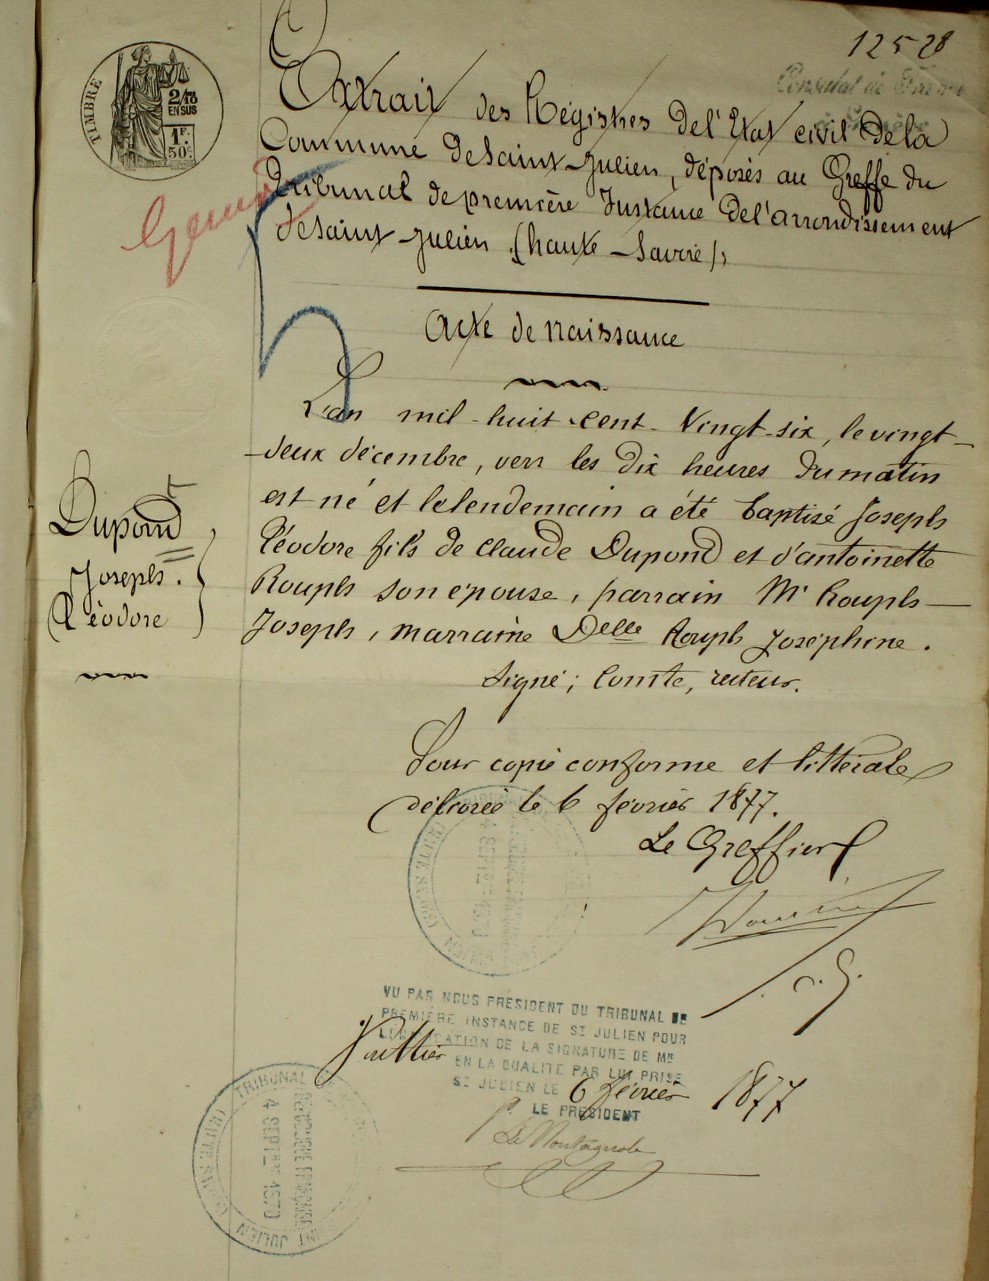 12528
Consulat de France
à Genève
TIMBRE
2/10
EN SUS
1 F.
50 c.
Extrait des Régistres de l'Etat civil de la
Commune de Saint-Julien, déposés au Greffe du
Tribunal de première Instance de l'arrondissement
de Saint-Julien (haute-Savoie),
Acte de naissance
L'an mil-huit-cent-Vingt-six, le vingt-
-deux décembre, vers les dix heures du matin
est né et le lendemain a été baptisé Joseph
Téodore fils de Claude Dupond et d'antoinette
Rouph son épouse, parrain Mr Rouph-
Joseph, marraine Delle Rouph Joséphine.
Signé; Comte, recteur.
Dupond
T
Joseph.
Téodore
Pour copie conforme et littérale
délivrée le 6 février 1877.
Le Greffier
c. g.
VU PAR NOUS PRESIDENT DU TRIBUNAL DE
PREMIÈRE INSTANCE DE ST JULIEN POUR
LEGALISATION DE LA SIGNATURE DE MR
EN LA QUALITE PAR LUI PRISE
ST JULIEN LE 6 février 1877
LE PRESIDENT
TRIBUNAL
REPUBLIQUE FRANÇAISE
4 SEPTBRE 1870
JULIEN (HAUTE SAVOIE)
TRIBUNAL
REPUBLIQUE FRANÇAISE
4 SEPTBRE 1870
SAINT JULIEN (HAUTE SAVOIE)